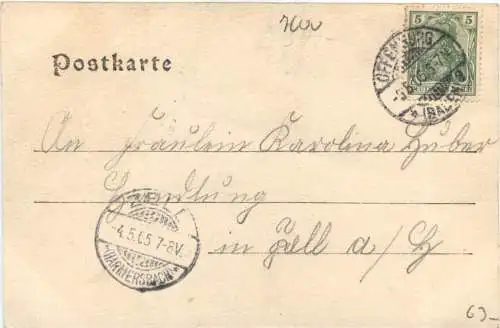 7600
5 5
OFFENBURG
(BADEN)
Postkarte
An Fräulein Karolina Huber
Handlung
in Zell a/H
ZELL
-4.5.05.7-8V.
(HARMERSBACH)
63-